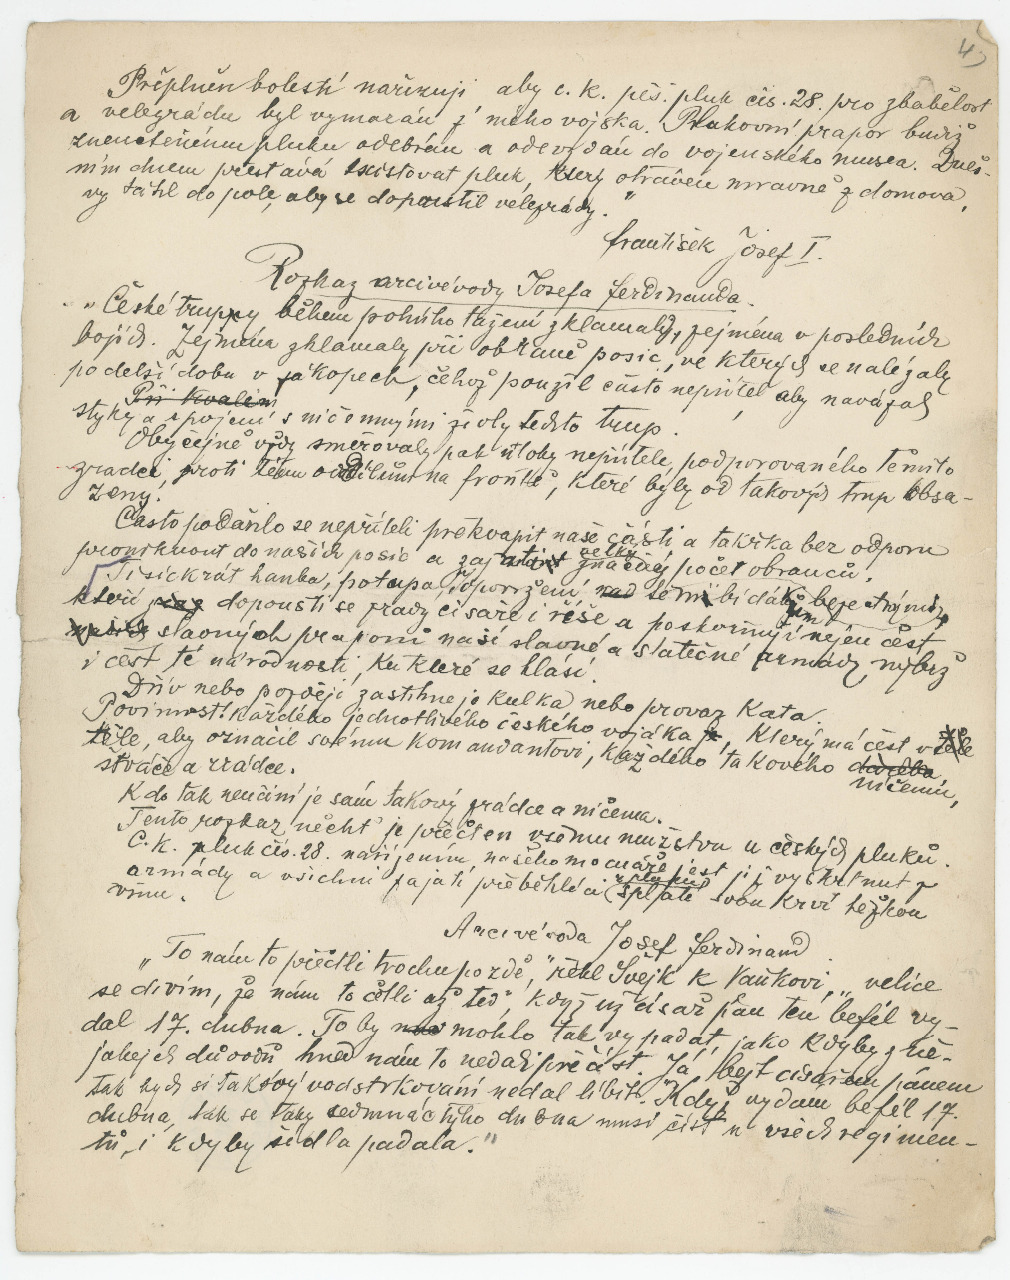 4)
Přeplněn bolestí nařizuji aby c. k. pěš. pluk čís. 28. pro zbabělost
a velezrádu byl vymazán z mého vojska. Plukovní prapor budiž
zneuctěnému pluku odebrán a odevzdán do vojenského musea. Dneš-
ním dnem přestává existovat pluk, který otráven mravně z domova,
vytáhl do pole, aby se dopustil velezrády."
František Josef I.
Rozkaz arcivévody Josefa Ferdinanda.
„České trupy během polního tažení zklamaly, zejména v posledních
bojích. Zejména zklamaly při obraně posic, ve kterých se nalézaly
po delší dobu v zákopech, čehož použil často nepřítel, aby navázal
Při kvalém
styky a spojení s ničemnými živly těchto trup.
Obyčejně vždy směřovaly pak útoky nepřítele, podporovaného těmito
zrádci, proti těm oddílům na frontě, které byly od takových trup obsa-
zeny.
Často podařilo se nepříteli překvapit naše části a takřka bez odporu
proniknout do našich posic a zajmout značný velký počet obranců.
Tisíckrát hanba, potupa, i opovržení nad těmi bídáky bezectnými,
kteří dopustili se zrady císaře i říše a poskvrňují nejen čest
slavných praporů naší slavné a statečné armády, nýbrž
i čest té národnosti, ku které se hlásí.
Dřív nebo později zastihne je kulka nebo provaz kata.
Povinností každého jednotlivého českého vojáka je, který má čest v těle
těle, aby označil svému komandantovi, každého takového
ničemu,
štváče a zrádce.
Kdo tak neučiní je sám takový zrádce a ničema.
Tento rozkaz nechť je přečten všemu mužstvu u českých pluků.
C. k. pluk čís. 28. nařízením našeho mocnáře jest již vyškrtnut z
armády a všichni zajatí přeběhlíci splatí svou krví těžkou
vinu.
Arcivévoda Josef Ferdinand
„To nám to přečtli trochu pozdě," řekl Švejk k Vaňkovi, „velice
se divím, že nám to čtli až teď, když už císař pán ten befél vy-
dal 17. dubna. To by mohlo tak vypadat, jako kdyby z ně-
jakejch důvodů hned nám to nedali přečíst. Já, bejt císařem pánem
tak bych si takový vodstrkování nedal líbit. Když vydám befél 17.
dubna, tak se taky sedmnáctýho dubna musí číst u všech regimen-
tů, i kdyby šídla padala."